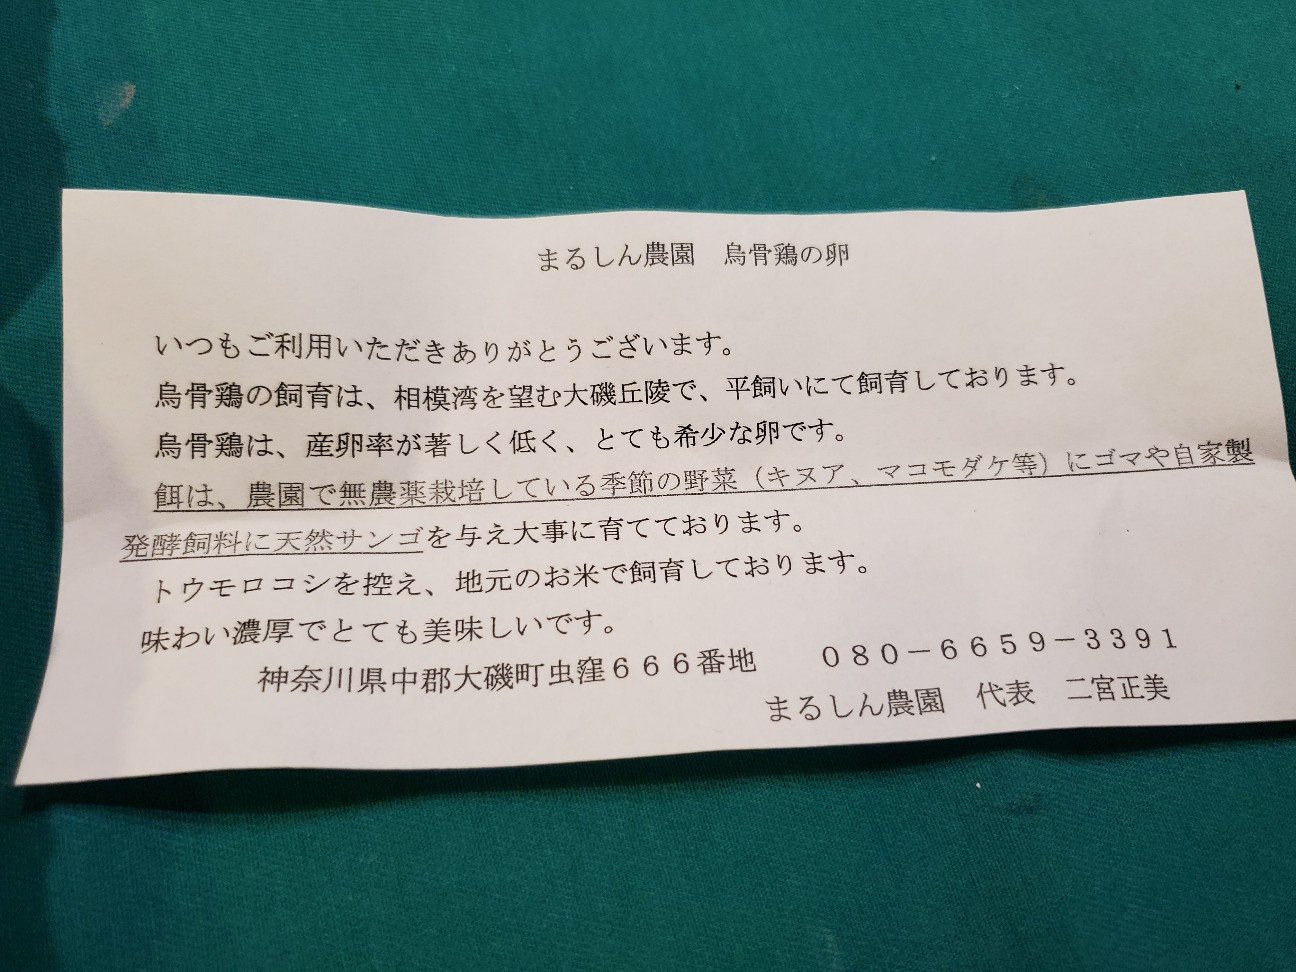 まるしん農園　烏骨鶏の卵
いつもご利用いただきありがとうございます。
烏骨鶏の飼育は、相模湾を望む大磯丘陵で、平飼いにて飼育しております。
烏骨鶏は、産卵率が著しく低く、とても希少な卵です。
餌は、農園で無農薬栽培している季節の野菜（キヌア、マコモダケ等）にゴマや自家製
発酵飼料に天然サンゴを与え大事に育てております。
トウモロコシを控え、地元のお米で飼育しております。
味わい濃厚でとても美味しいです。
神奈川県中郡大磯町虫窪６６６番地　　０８０－６６５９－３３９１
まるしん農園　代表　二宮正美